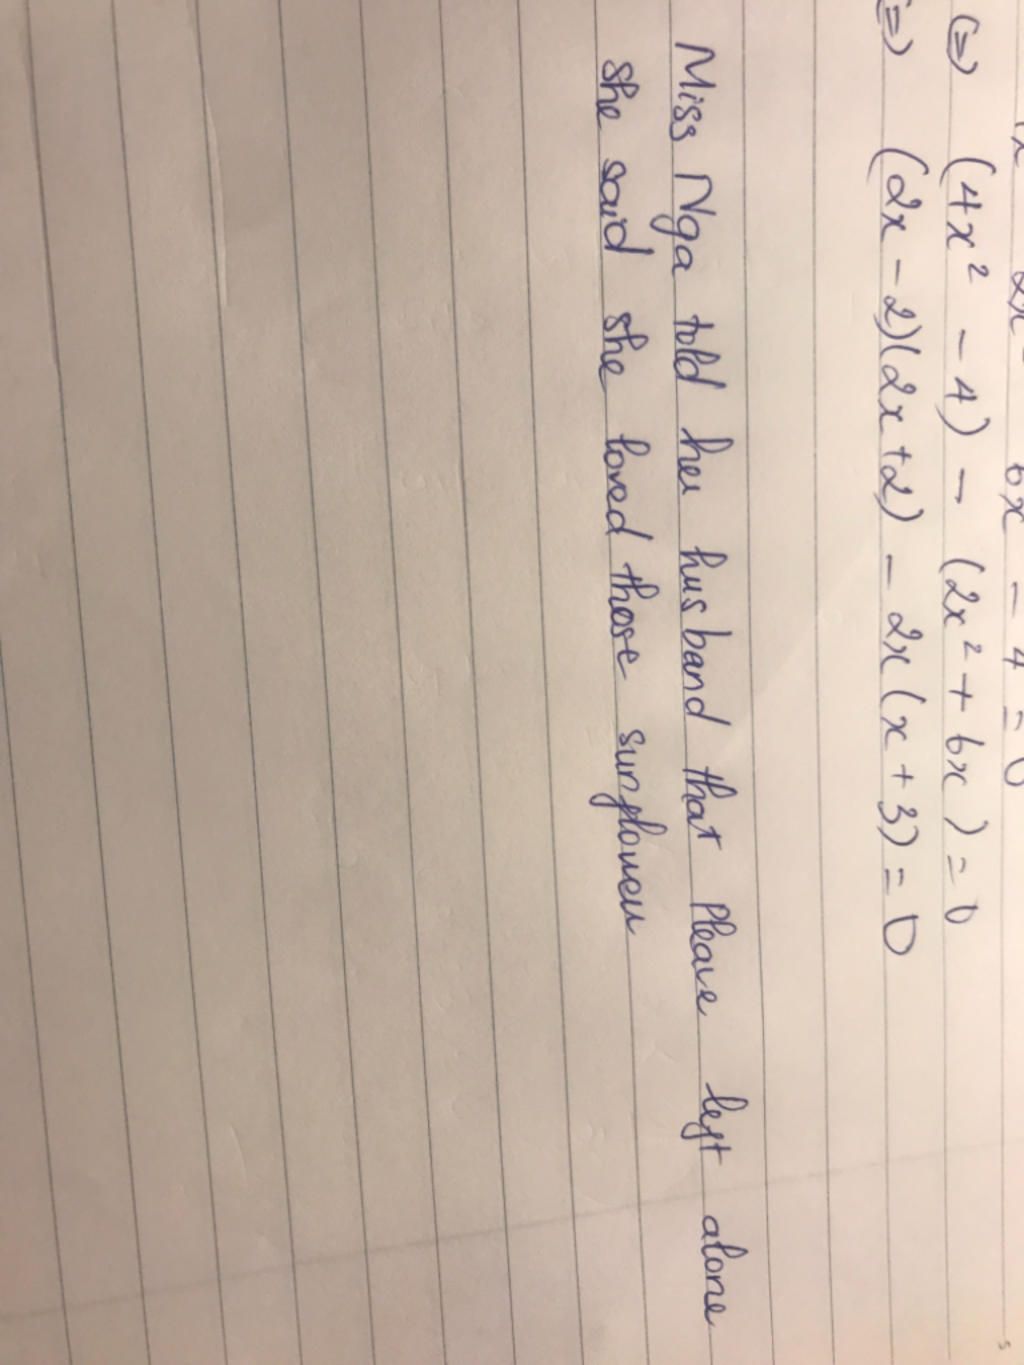 6x - 4 = 0
(=) (4x² - 4) - (2x² + 6x) = 0
(=) (2x - 2)(2x + 2) - 2x(x + 3) = 0
Miss Nga told her husband that Pleave left alone
She said she loved those sunflower